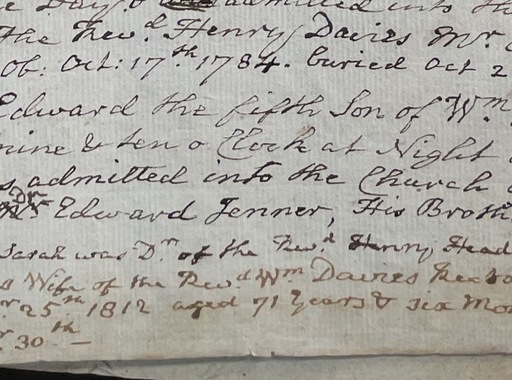 e Day & admitted into th
the Rev.d Henry Davies Mr
Ob: Oct: 17th 1784. buried Oct 2
Edward the fifth Son of Wm
nine & ten o Clock at Night
s admitted into the Church
Dr Edward Jenner, His Broth
Sarah was Dr. of the Rev.d Henry Head
Wife of the Rev.d Wm Davies
r 25.th 1812 aged 71 Years & six Mon
r 30th —